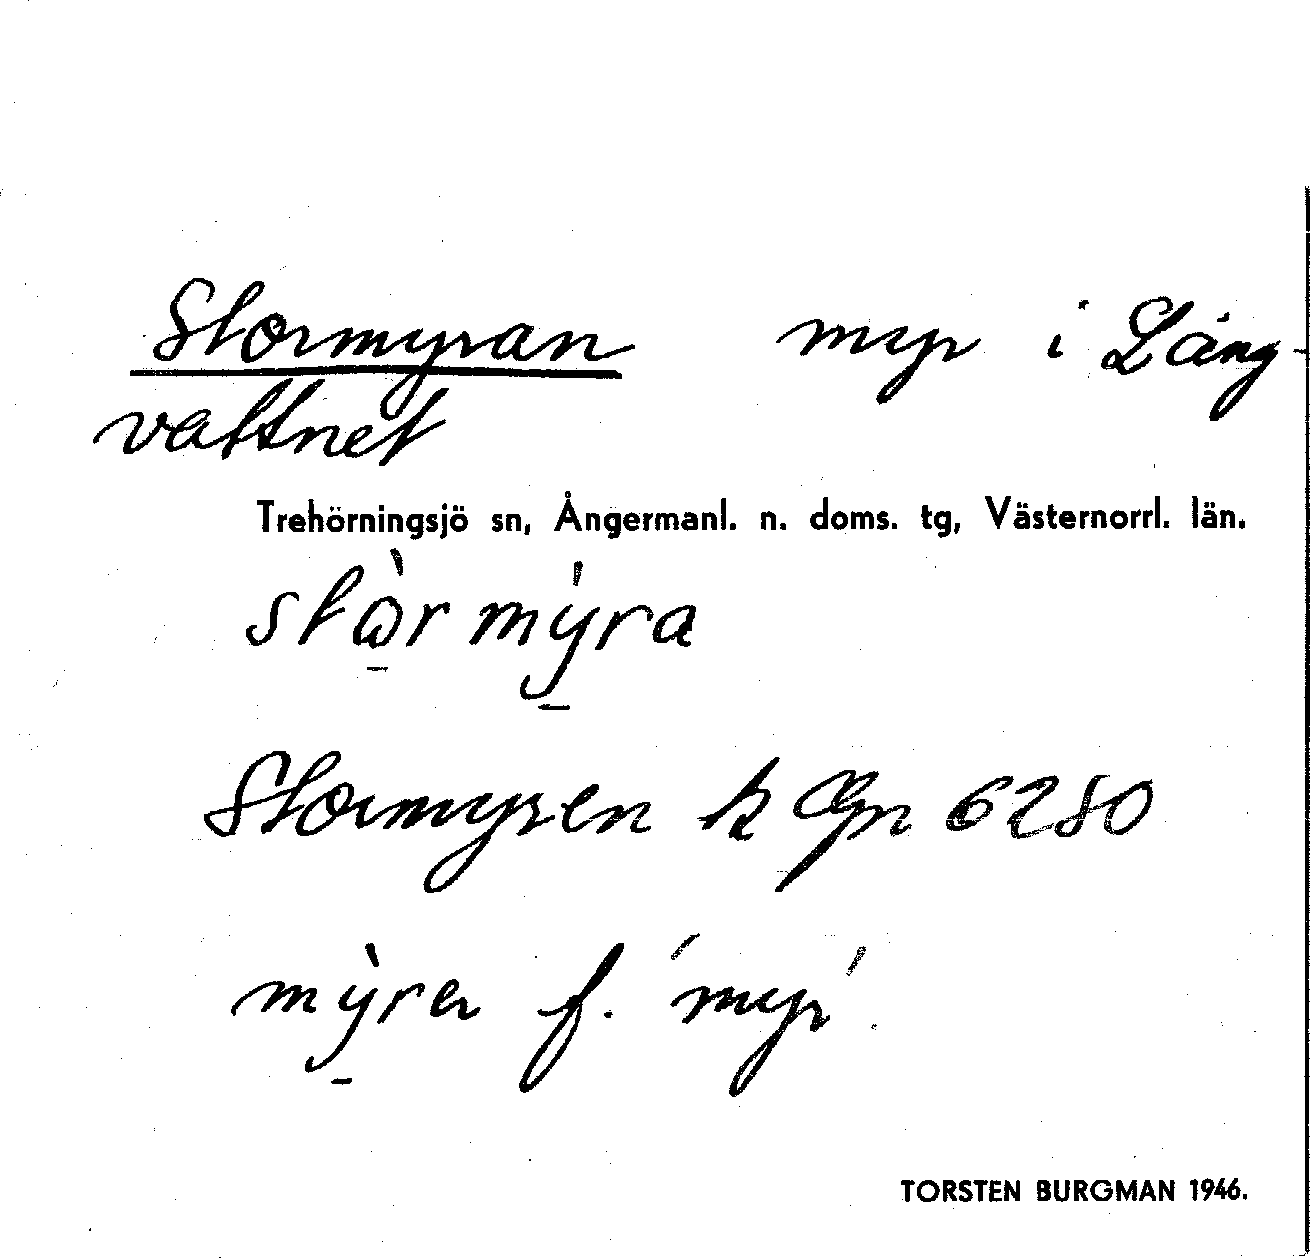 Stormyran myr i Lång-
vattnet
Trehörningsjö sn, Ångermanl. n. doms. tg, Västernorrl. län.
Stormyren k Ögn 6280
f. 'myr'.
TORSTEN BURGMAN 1946.